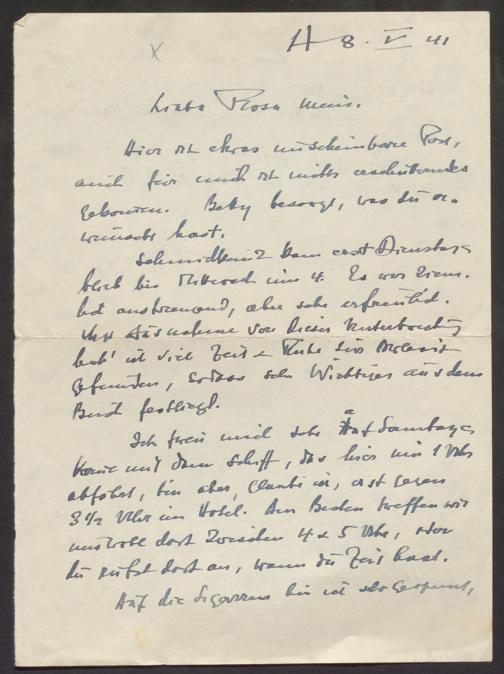 H 8. V 41
Liebe Rosa Maus.
Hier ist etwas unscheinbare Post,
auch für mich ist nichts erschütterndes
gekommen. Betty besorgt, was du er-
wünscht hast.
kam erst Dienstag,
blieb bis Mittwoch um 4. Es war ziem-
lich anstrengend, aber sehr erfreulich.
Mit Ausnahme von dieser Unterbrechung
hab' ich viel Zeit & Ruhe zur Arbeit
gefunden, sodass sehr Wichtiges aus dem
Buch festliegt.
Ich freu mich sehr auf Samstag,
komme mit dem Schiff, das hier um 1 Uhr
abfährt, bin aber, glaube ich, erst gegen
3 1/2 Uhr im Hotel. Am Besten treffen wir
uns wohl dort zwischen 4 & 5 Uhr, oder
du rufst dort an, wann du Zeit hast.
Auf die Zigarren bin ich sehr gespannt,